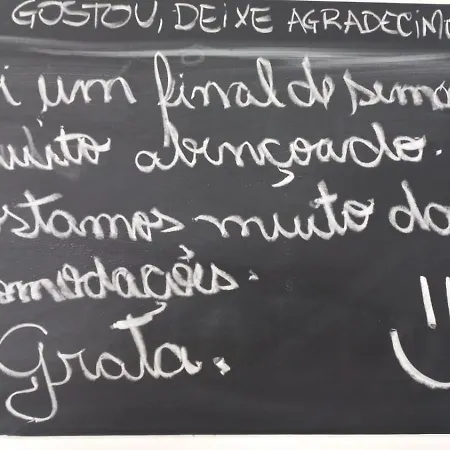 GOSTOU, DEIXE AGRADECIM
i um final de sema
muito abençoado.
stamos muito da
omodações.
Grata.